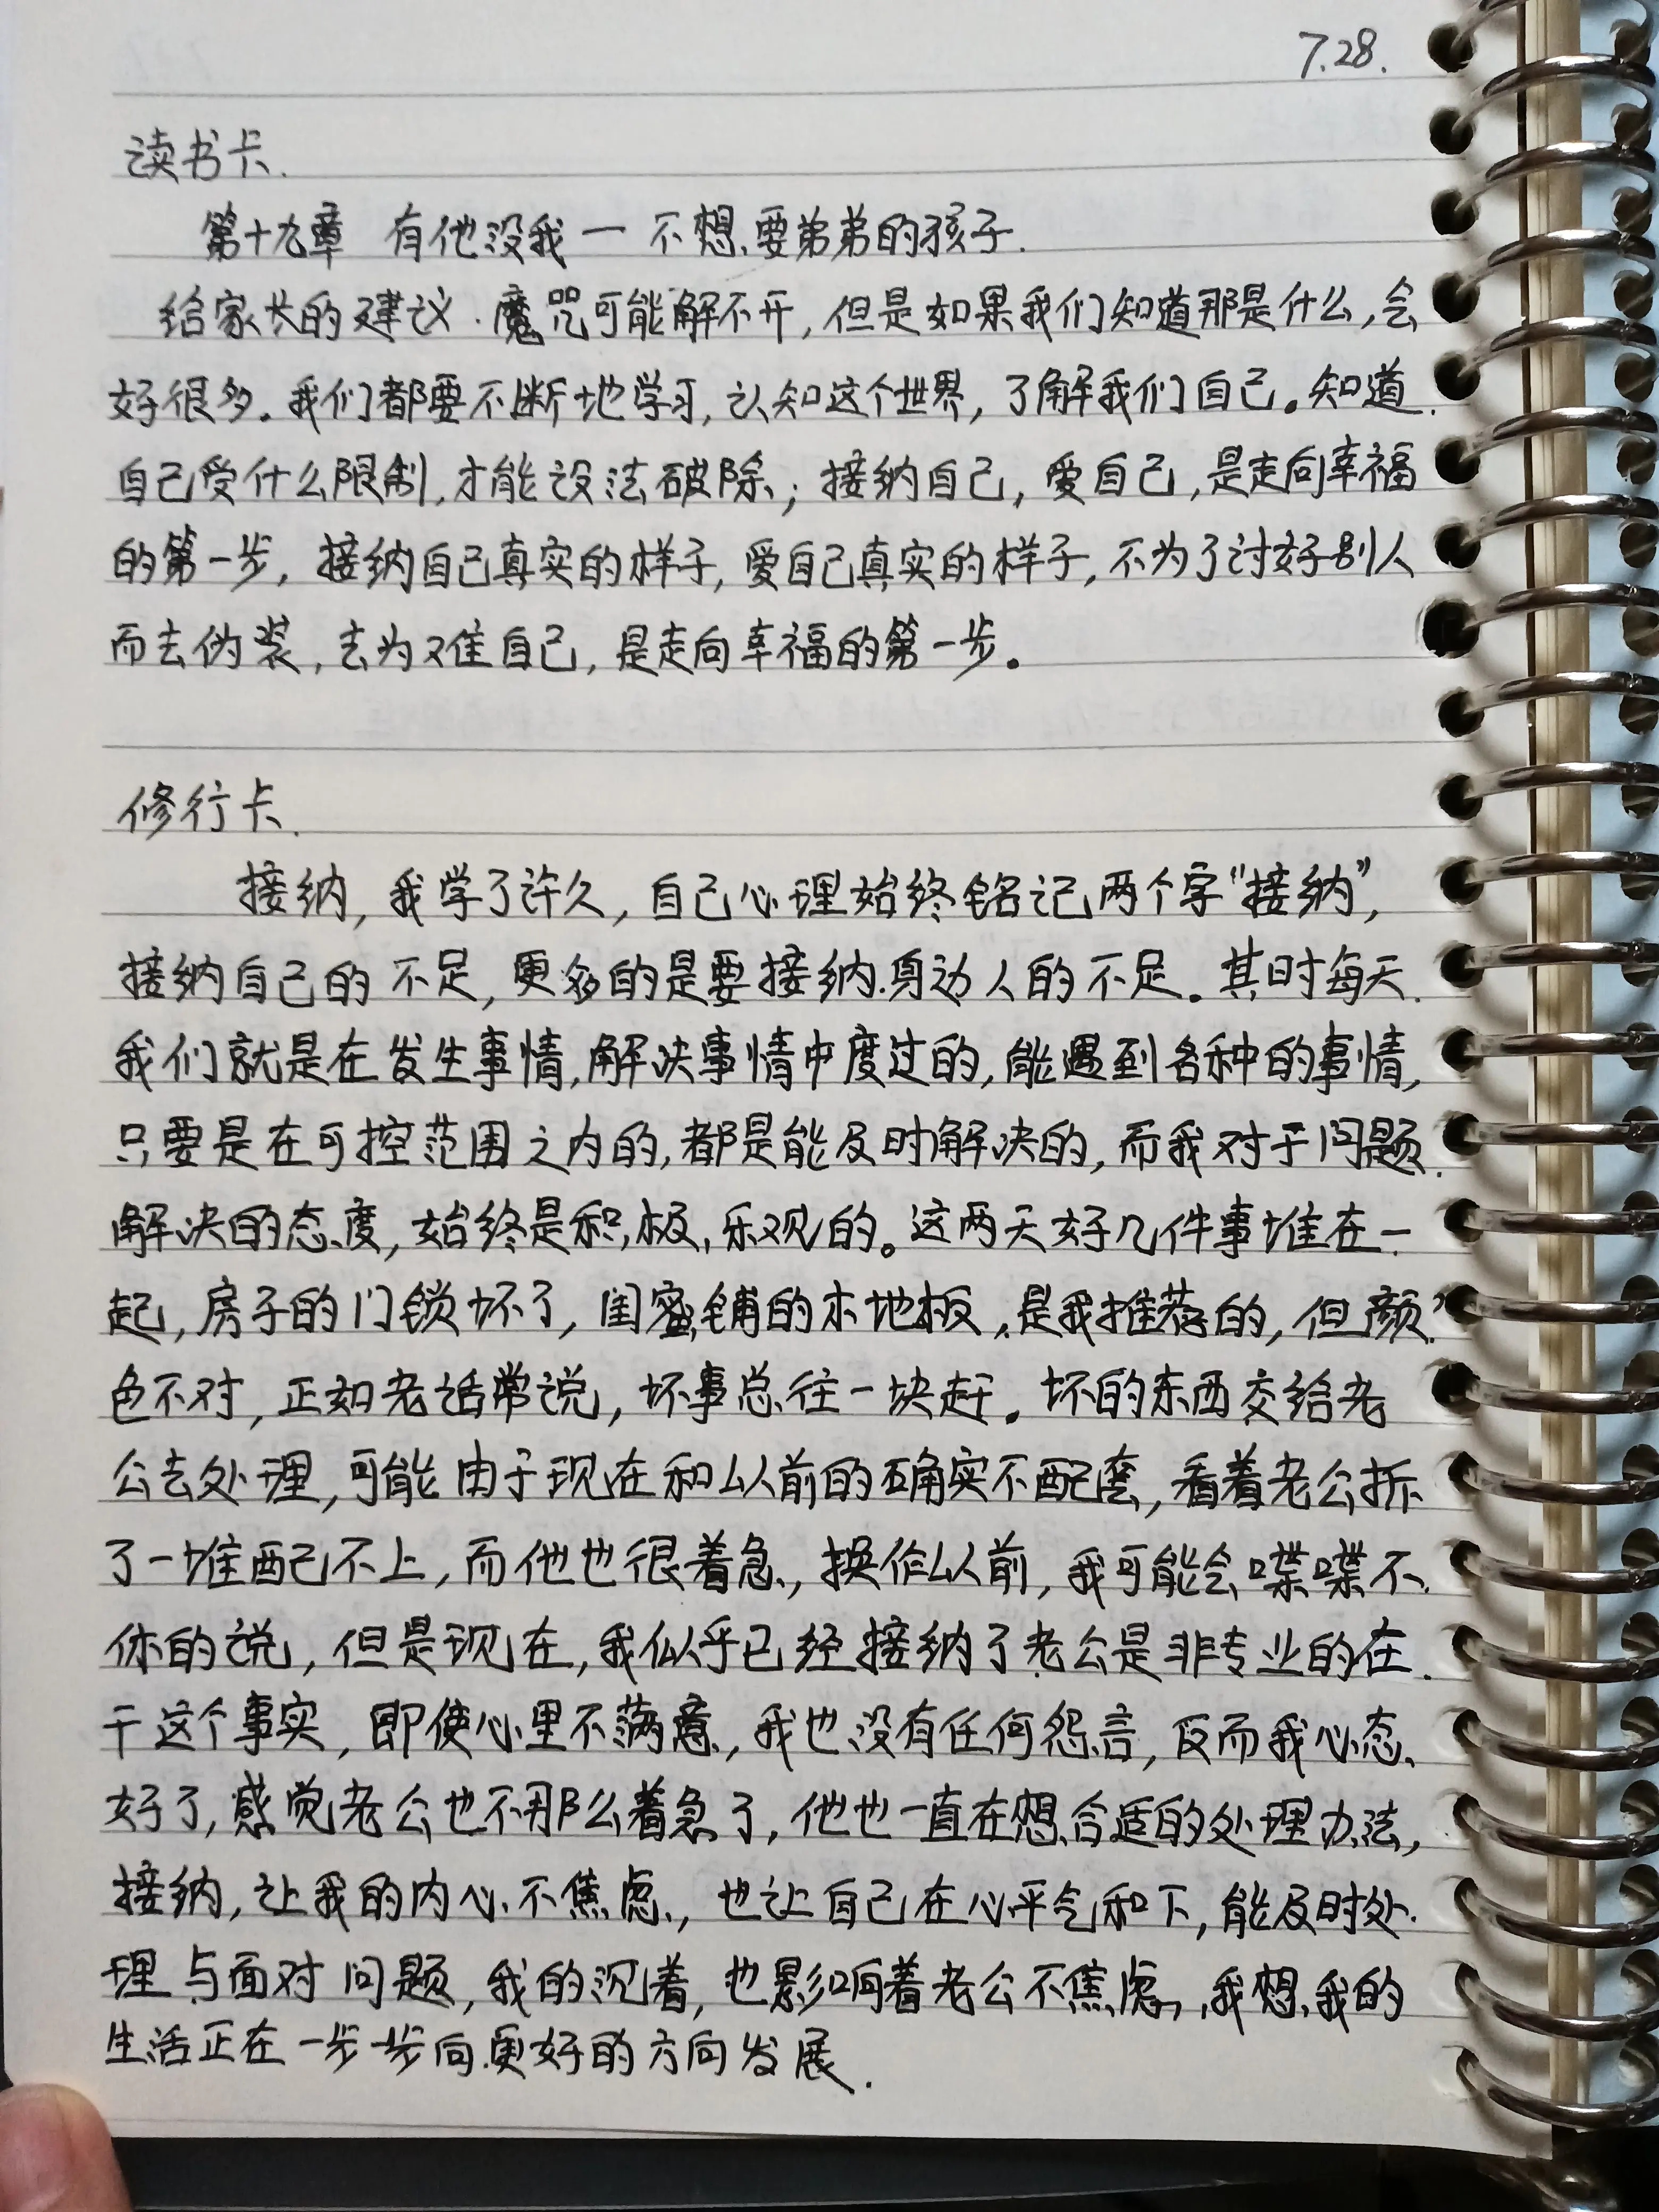 7.28.
读书卡.
第十九章 有他没我一 不想要弟弟的孩子.
给家长的建议.魔咒可能解不开,但是如果我们知道那是什么,会
好很多。我们都要不断地学习,认知这个世界,了解我们自己。知道
自己受什么限制,才能设法破除;接纳自己,爱自己,是走向幸福
的第一步,接纳自己真实的样子,爱自己真实的样子,不为了讨好别人
而去伪装,去为难自己,是走向幸福的第一步。
修行卡.
接纳,我学了许久,自己心理始终铭记两个字"接纳",
接纳自己的不足,更多的是要接纳身边人的不足。其时每天
我们就是在发生事情,解决事情中度过的,能遇到各种的事情,
只要是在可控范围之内的,都是能及时解决的,而我对于问题
解决的态度,始终是积极,乐观的。这两天好几件事堆在一
起,房子的门锁坏了,闺蜜铺的木地板,是我推荐的,但颜
色不对,正如老话常说,坏事总往一块赶。坏的东西交给老
公去处理,可能由于现在和以前的确实不配套,看着老公拆
了一堆配不上,而他也很着急,换作以前,我可能会喋喋不
休的说,但是现在,我似乎已经接纳了老公是非专业的在
干这个事实,即使心里不满意,我也没有任何怨言,反而我心态
好了,感觉老公也不那么着急了,他也一直在想合适的处理办法,
接纳,让我的内心不焦虑,也让自己在心平气和下,能及时处
理与面对问题,我的沉着,也影响着老公不焦虑,我想我的
生活正在一步一步向更好的方向发展.